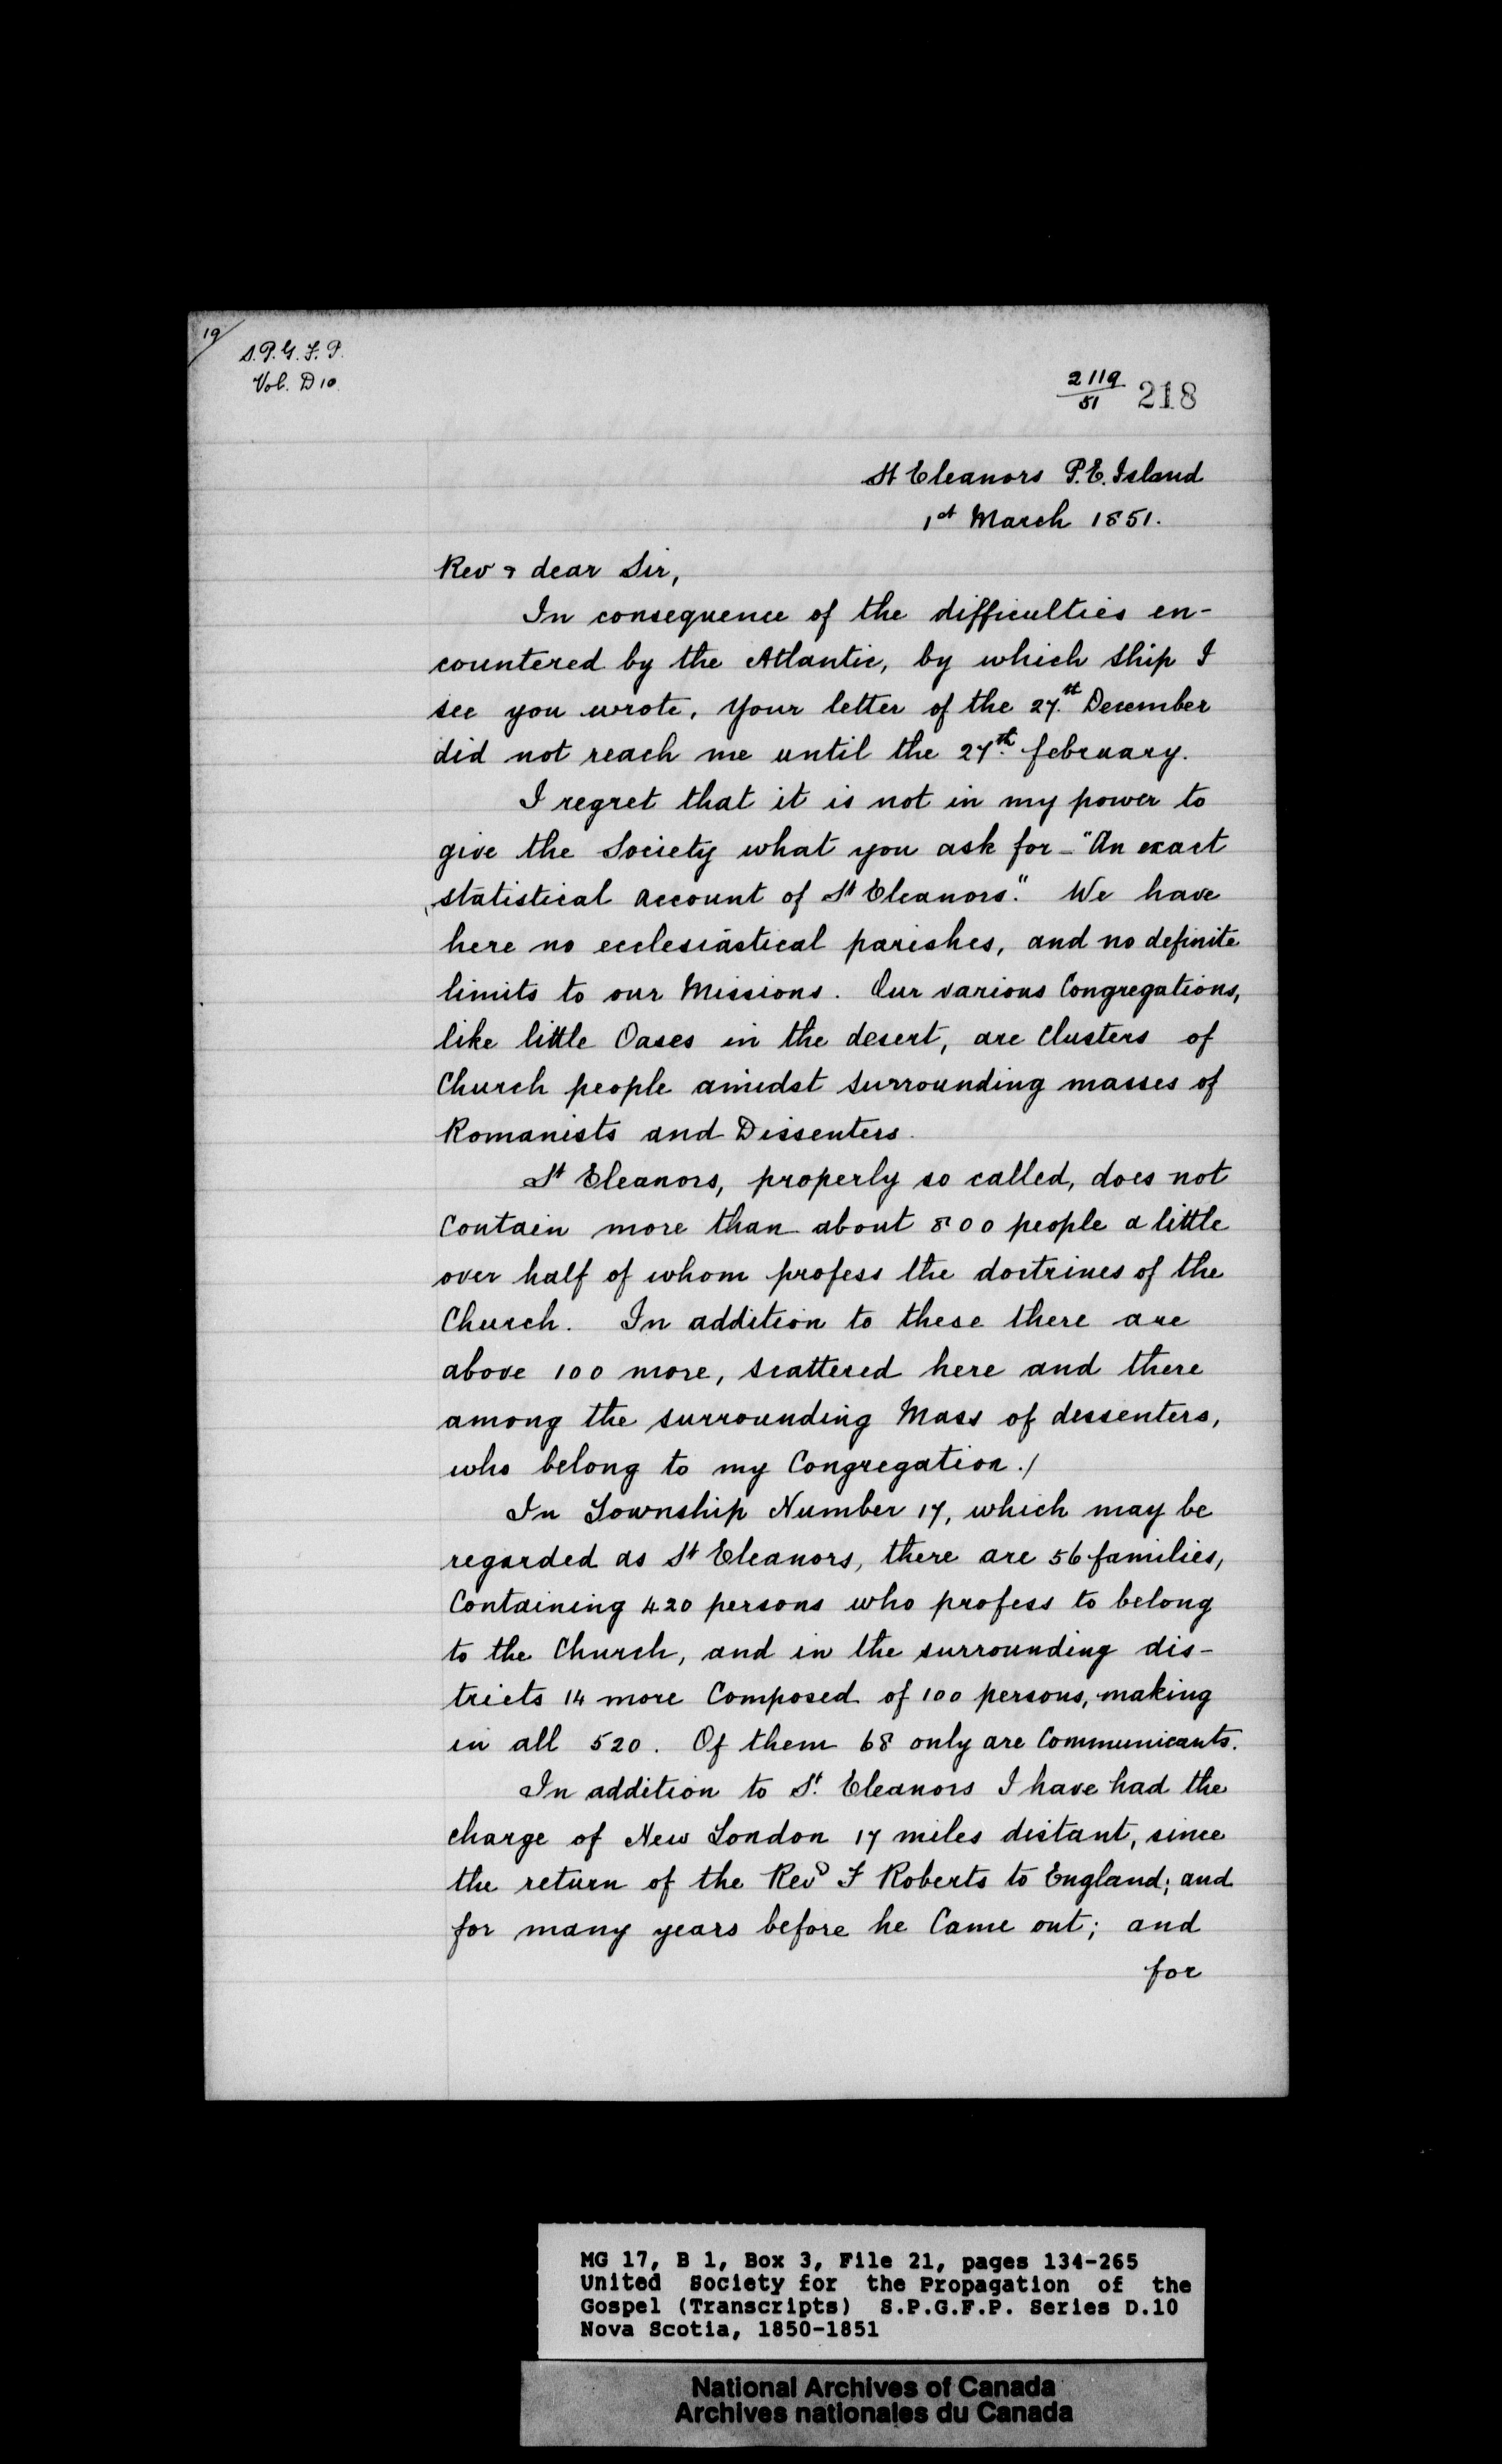 19/
S.P.G.F.P.
Vol. D 10.
2119
51
218
St Eleanors P.E. Island
1st March 1851.
Rev & dear Sir,
In consequence of the difficulties en-
countered by the Atlantic, by which ship I
see you wrote, Your letter of the 27.th December
did not reach me until the 27th. february.
I regret that it is not in my power to
give the Society what you ask for - "An exact
statistical account of St Eleanors." We have
here no ecclesiastical parishes, and no definite
limits to our Missions. Our various Congregations,
like little Oases in the desert, are Clusters of
Church people amidst surrounding masses of
Romanists and Dissenters.
St Eleanors, properly so called, does not
Contain more than about 800 people a little
over half of whom profess the doctrines of the
Church. In addition to these there are
above 100 more, scattered here and there
among the surrounding Mass of dessenters,
who belong to my Congregation./
In Township Number 17, which may be
regarded as St Eleanors, there are 56 families,
Containing 420 persons who profess to belong
to the Church, and in the surrounding dis-
tricts 14 more Composed of 100 persons, making
in all 520. Of them 68 only are Communicants.
In addition to St. Eleanors I have had the
charge of New London 17 miles distant, since
the return of the Revd F Roberts to England; and
for many years before he Came out; and
for
MG 17, B 1, Box 3, File 21, pages 134-265
United Society for the Propagation of the
Gospel (Transcripts) S.P.G.F.P. Series D.10
Nova Scotia, 1850-1851
National Archives of Canada
Archives nationales du Canada